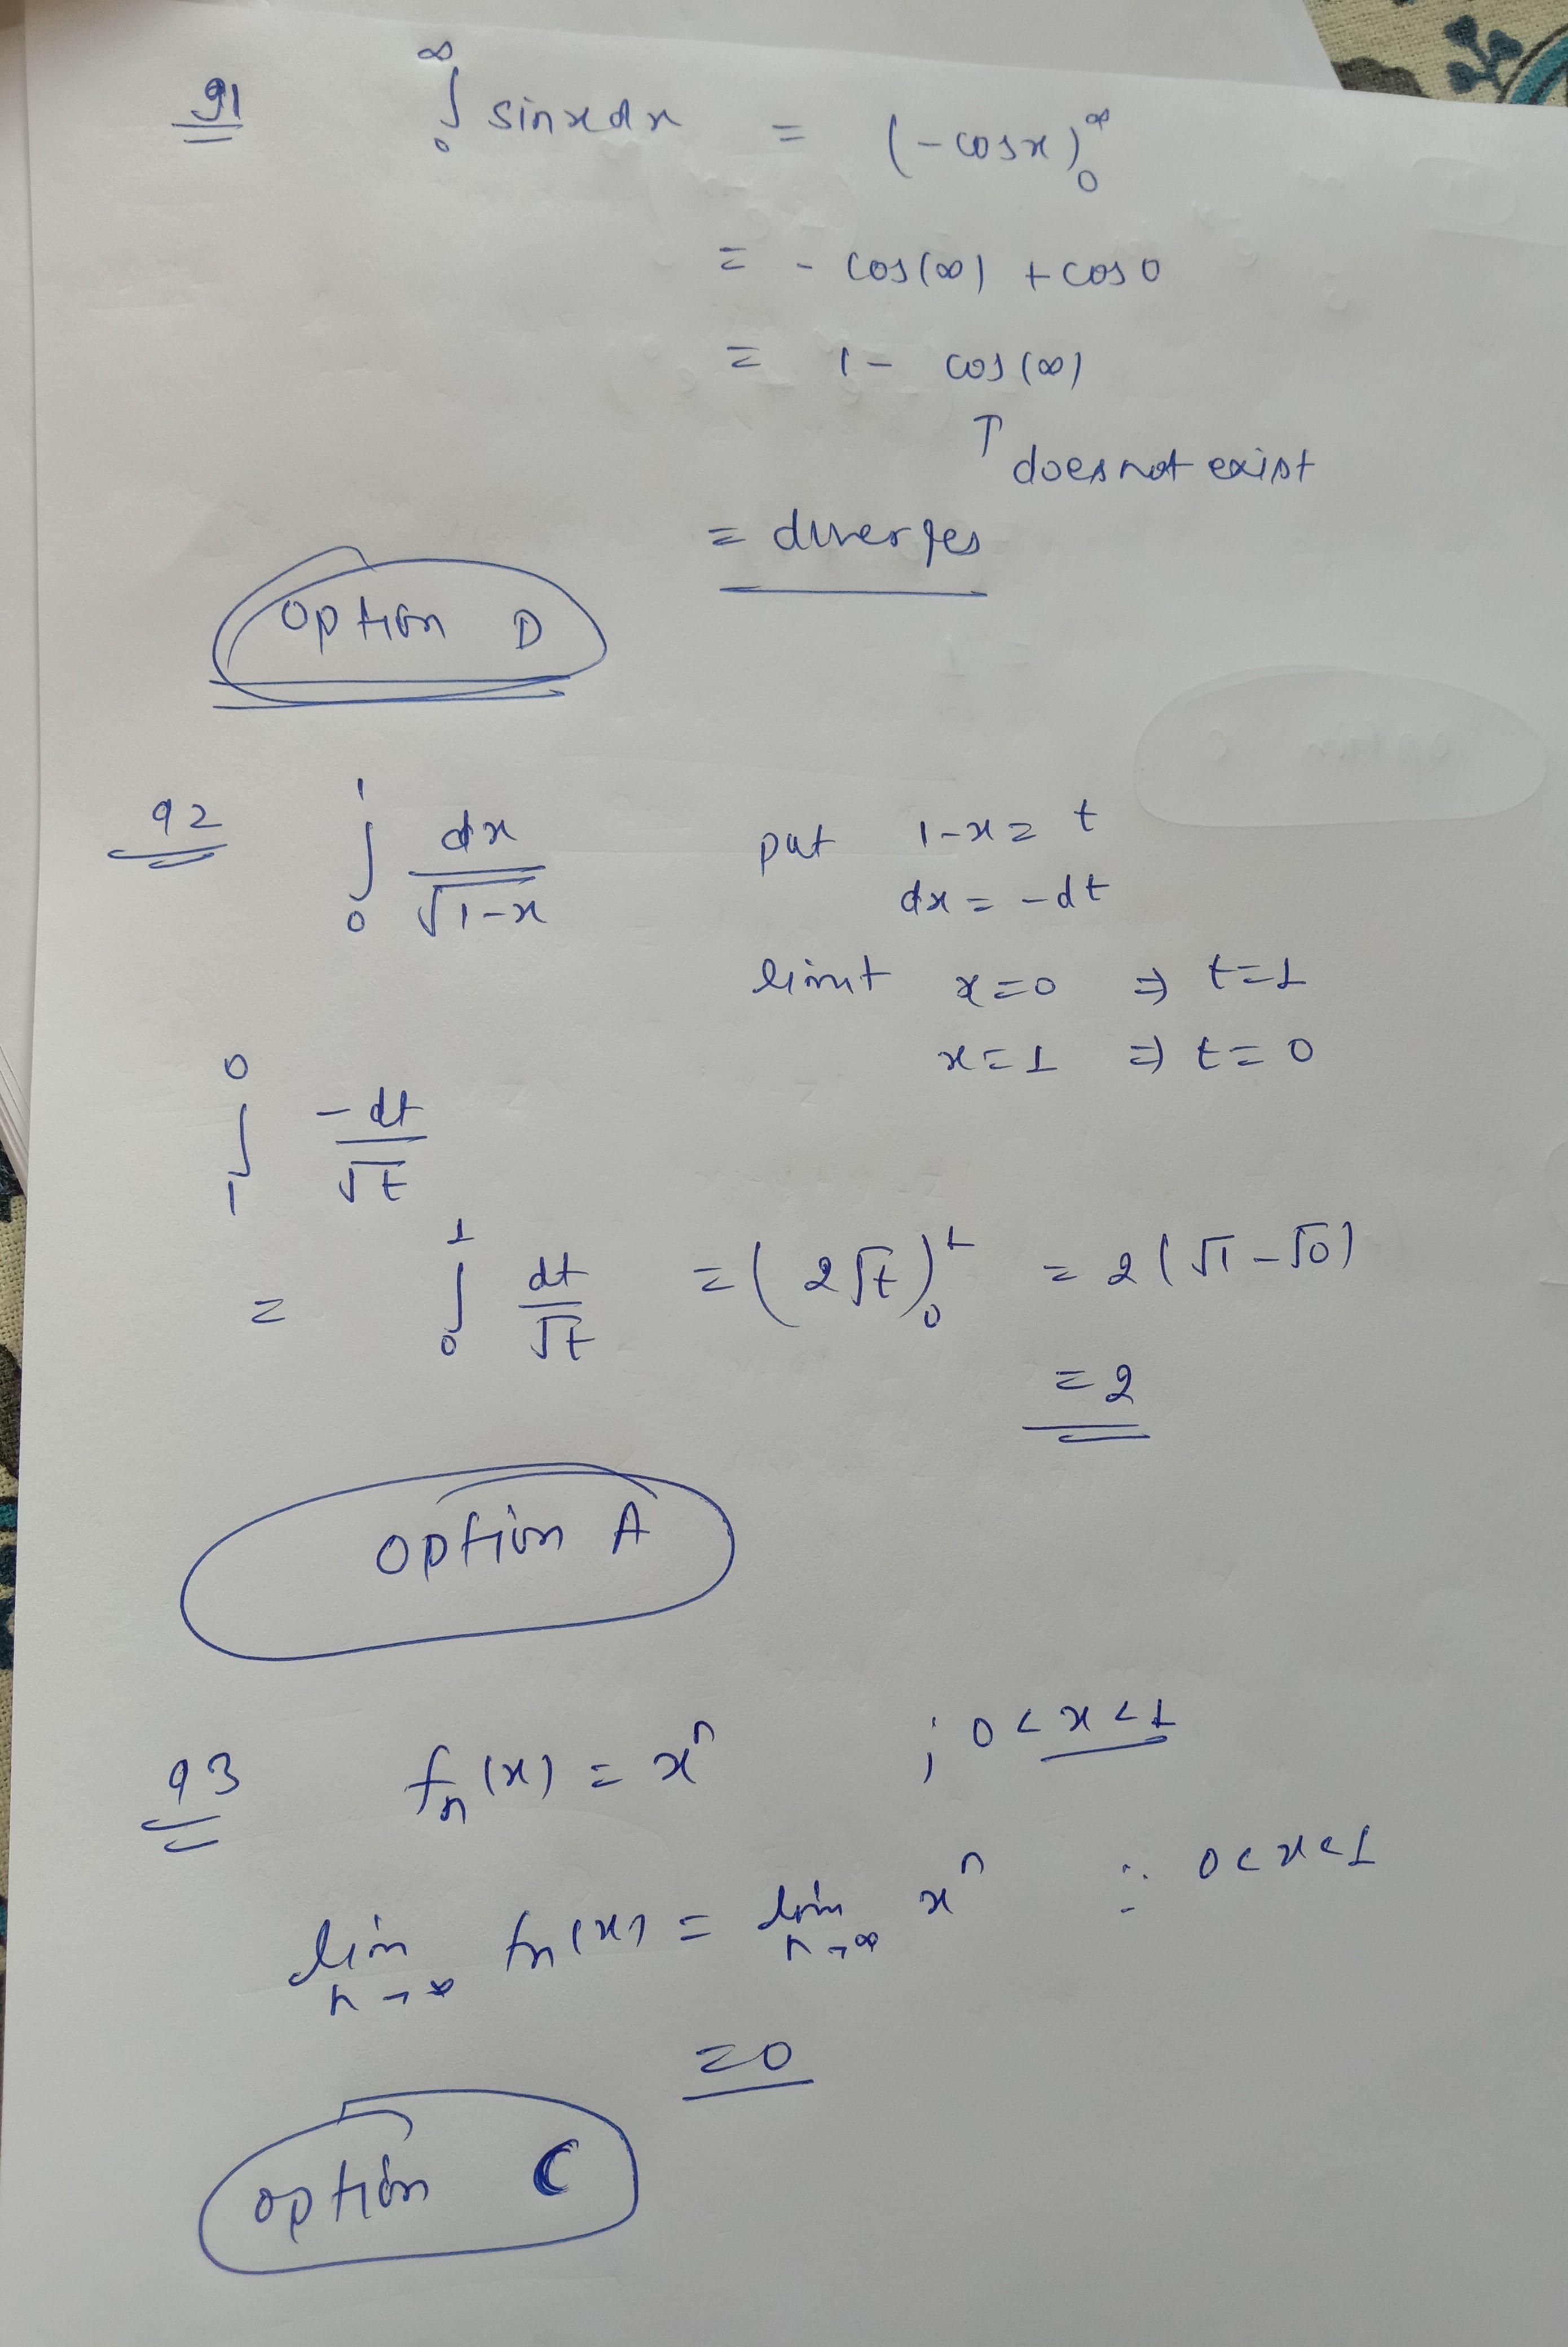 91 ∫₀^∞ sinx dx = (-cosx)₀^∞
= - cos(∞) + cos 0
= 1 - cos(∞)
↑ does not exist
= diverges
option D
92 ∫₀^1 dx/√(1-x) put 1-x = t
dx = -dt
limit x=0 ⇒ t=1
x=1 ⇒ t=0
∫₁^0 -dt/√t
= ∫₀^1 dt/√t = (2√t)₀^1 = 2(√1-√0)
= 2
option A
93 fₙ(x) = xⁿ ; 0<x<1
lim n→∞ fn(x) = lim n→∞ xⁿ ∵ 0<x<1
=0
option C